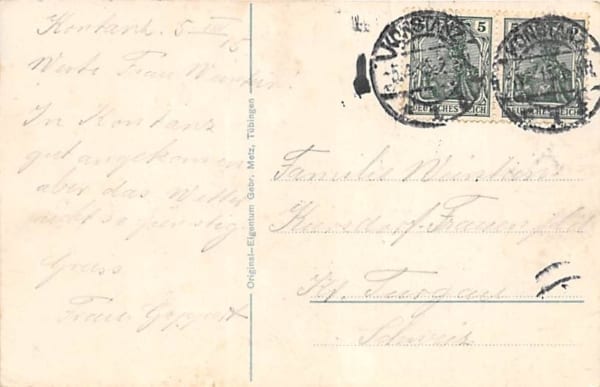 Konstanz. 5 VII 15
Werte Frau
In Konstanz
gut angekommen
aber das Wetter
nicht so günstig
Gruss
Frau Geppert
Original-Eigentum Gebr. Metz, Tübingen
KONSTANZ
KONSTANZ
5
DEUTSCHES REICH
DEUTSCHES REICH
Familie
Frauenfeld
Kt. Turgau
Schweiz